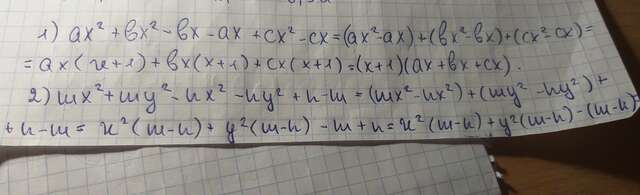 1) ax² + bx² - bx - ax + cx² - cx = (ax² - ax) + (bx² - bx) + (cx² - cx) =
= ax(x+1) + bx(x+1) + cx(x+1) = (x+1)(ax + bx + cx).
2) mx² + my² - nx² - ny² + n - m = (mx² - nx²) + (my² - ny²) +
+ n - m = x²(m-n) + y²(m-n) - m + n = x²(m-n) + y²(m-n) - (m-n)